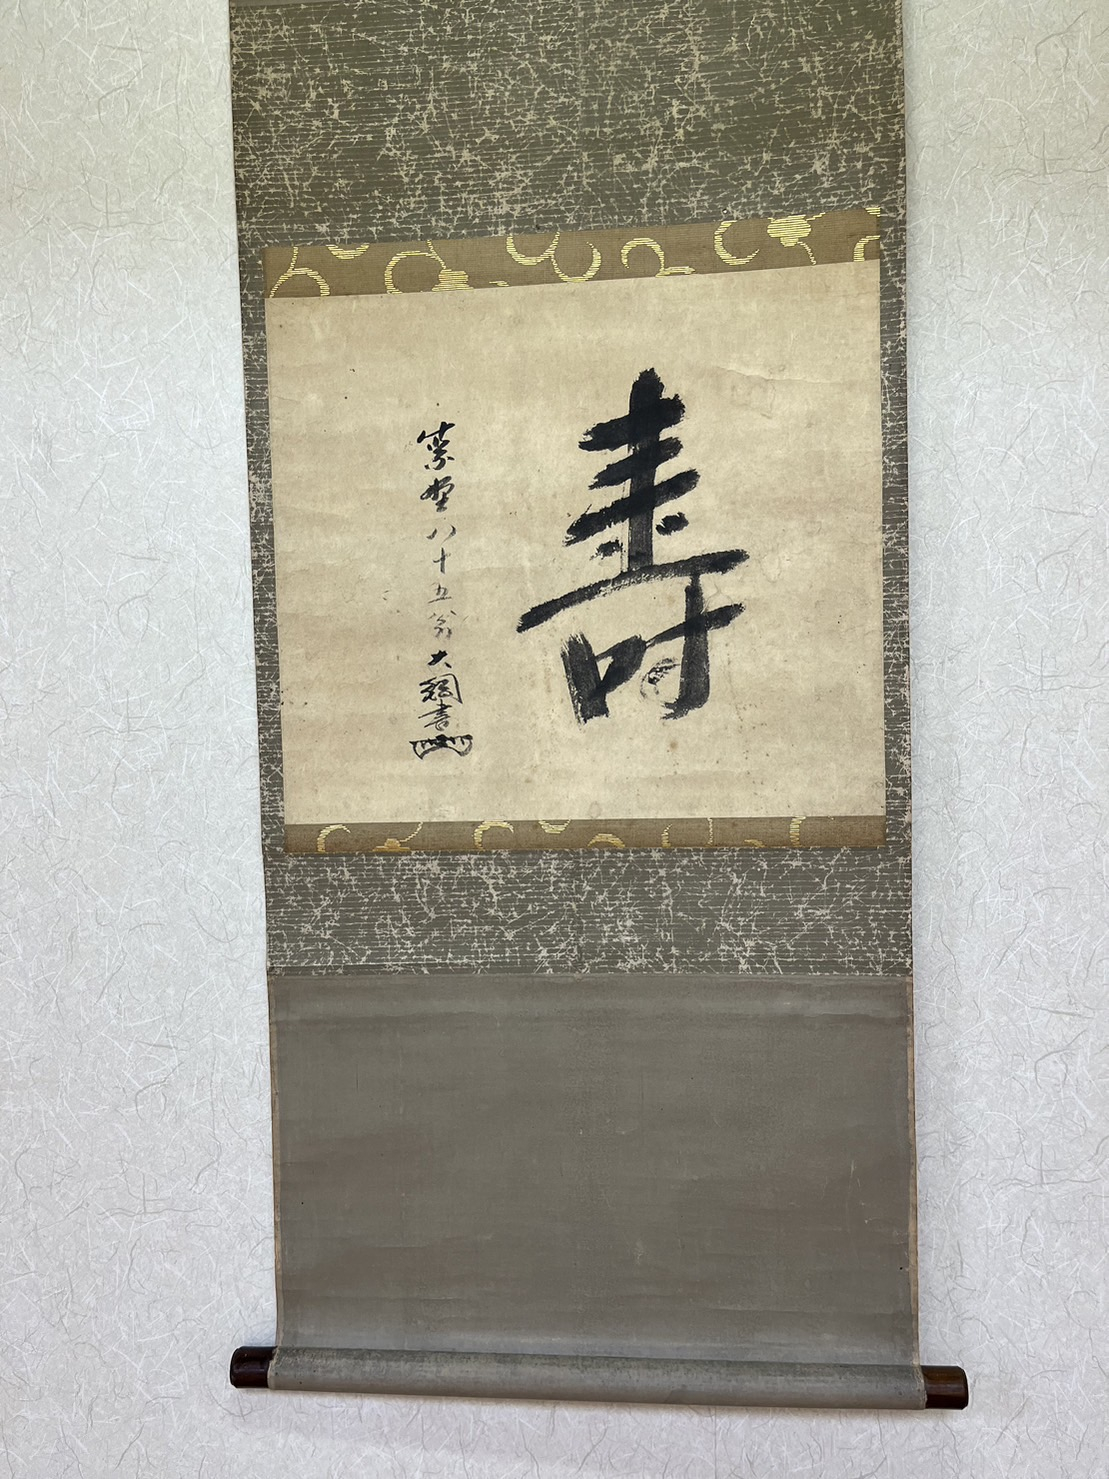 壽
紫野八十五翁大綱書